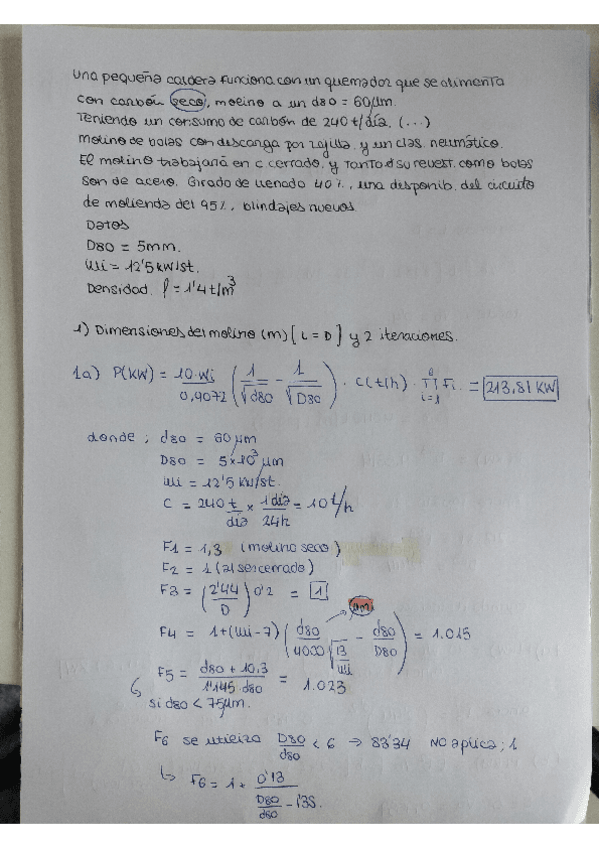 una pequeña caldera funciona con un quemador que se alimenta
con carbón seco, molino a un d80 = 60μm.
Teniendo un consumo de carbón de 240 t/día. (...)
Molino de bolas con descarga por rejilla, y un clas. neumático.
El molino trabajará en c. cerrado, y tanto d su revest. como bolas
son de acero. Grado de llenado 40%, una disponib. del circuito
de molienda del 95%, blindajes nuevos.
Datos
D80 = 5mm.
Wi = 12'5 kW/st.
Densidad. ρ = 1'4 t/m³
1) Dimensiones del molino (m) [L = D] y 2 iteraciones.
1a) P(KW) = 10·Wi / 0,9072 (1/√d80 - 1/√D80) · C(t/h) · 8∏i=1 Fi. = 213,81 KW
donde; d80 = 60 μm
D80 = 5×10³ μm
Wi = 12'5 kW/st.
C = 240 t/día × 1 día/24h = 10 t/h
F1 = 1,3 (molino seco)
F2 = 1 (al ser cerrado)
F3 = (2'44/D)0'2 = 1
μm
F4 = 1+(Wi-7) (d80/4000√13/Wi - d80/D80) = 1.015
F5 = d80 + 10,3 / 1'145·d80 = 1.023
si d80 < 75μm.
F6 se utiliza D80/d80 < 6 ⇒ 83'34 NO aplica; 1
↳ F6 = 1 + 0'13 / D80/d80 - 1'35.